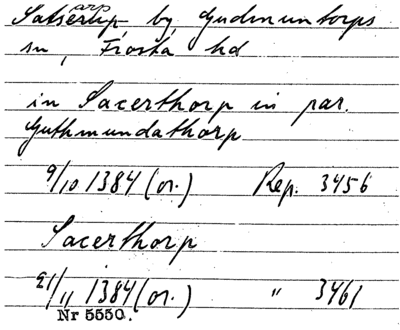 Satserup, by, Gudmuntorps
arp
sn, Frosta hd
in Sacerthorp in par.
Guthmundathorp
9/10 1384 (or.) Rep. 3456
Sacerthorp
13/11 1384 (or.) " 3461
Nr 5550.